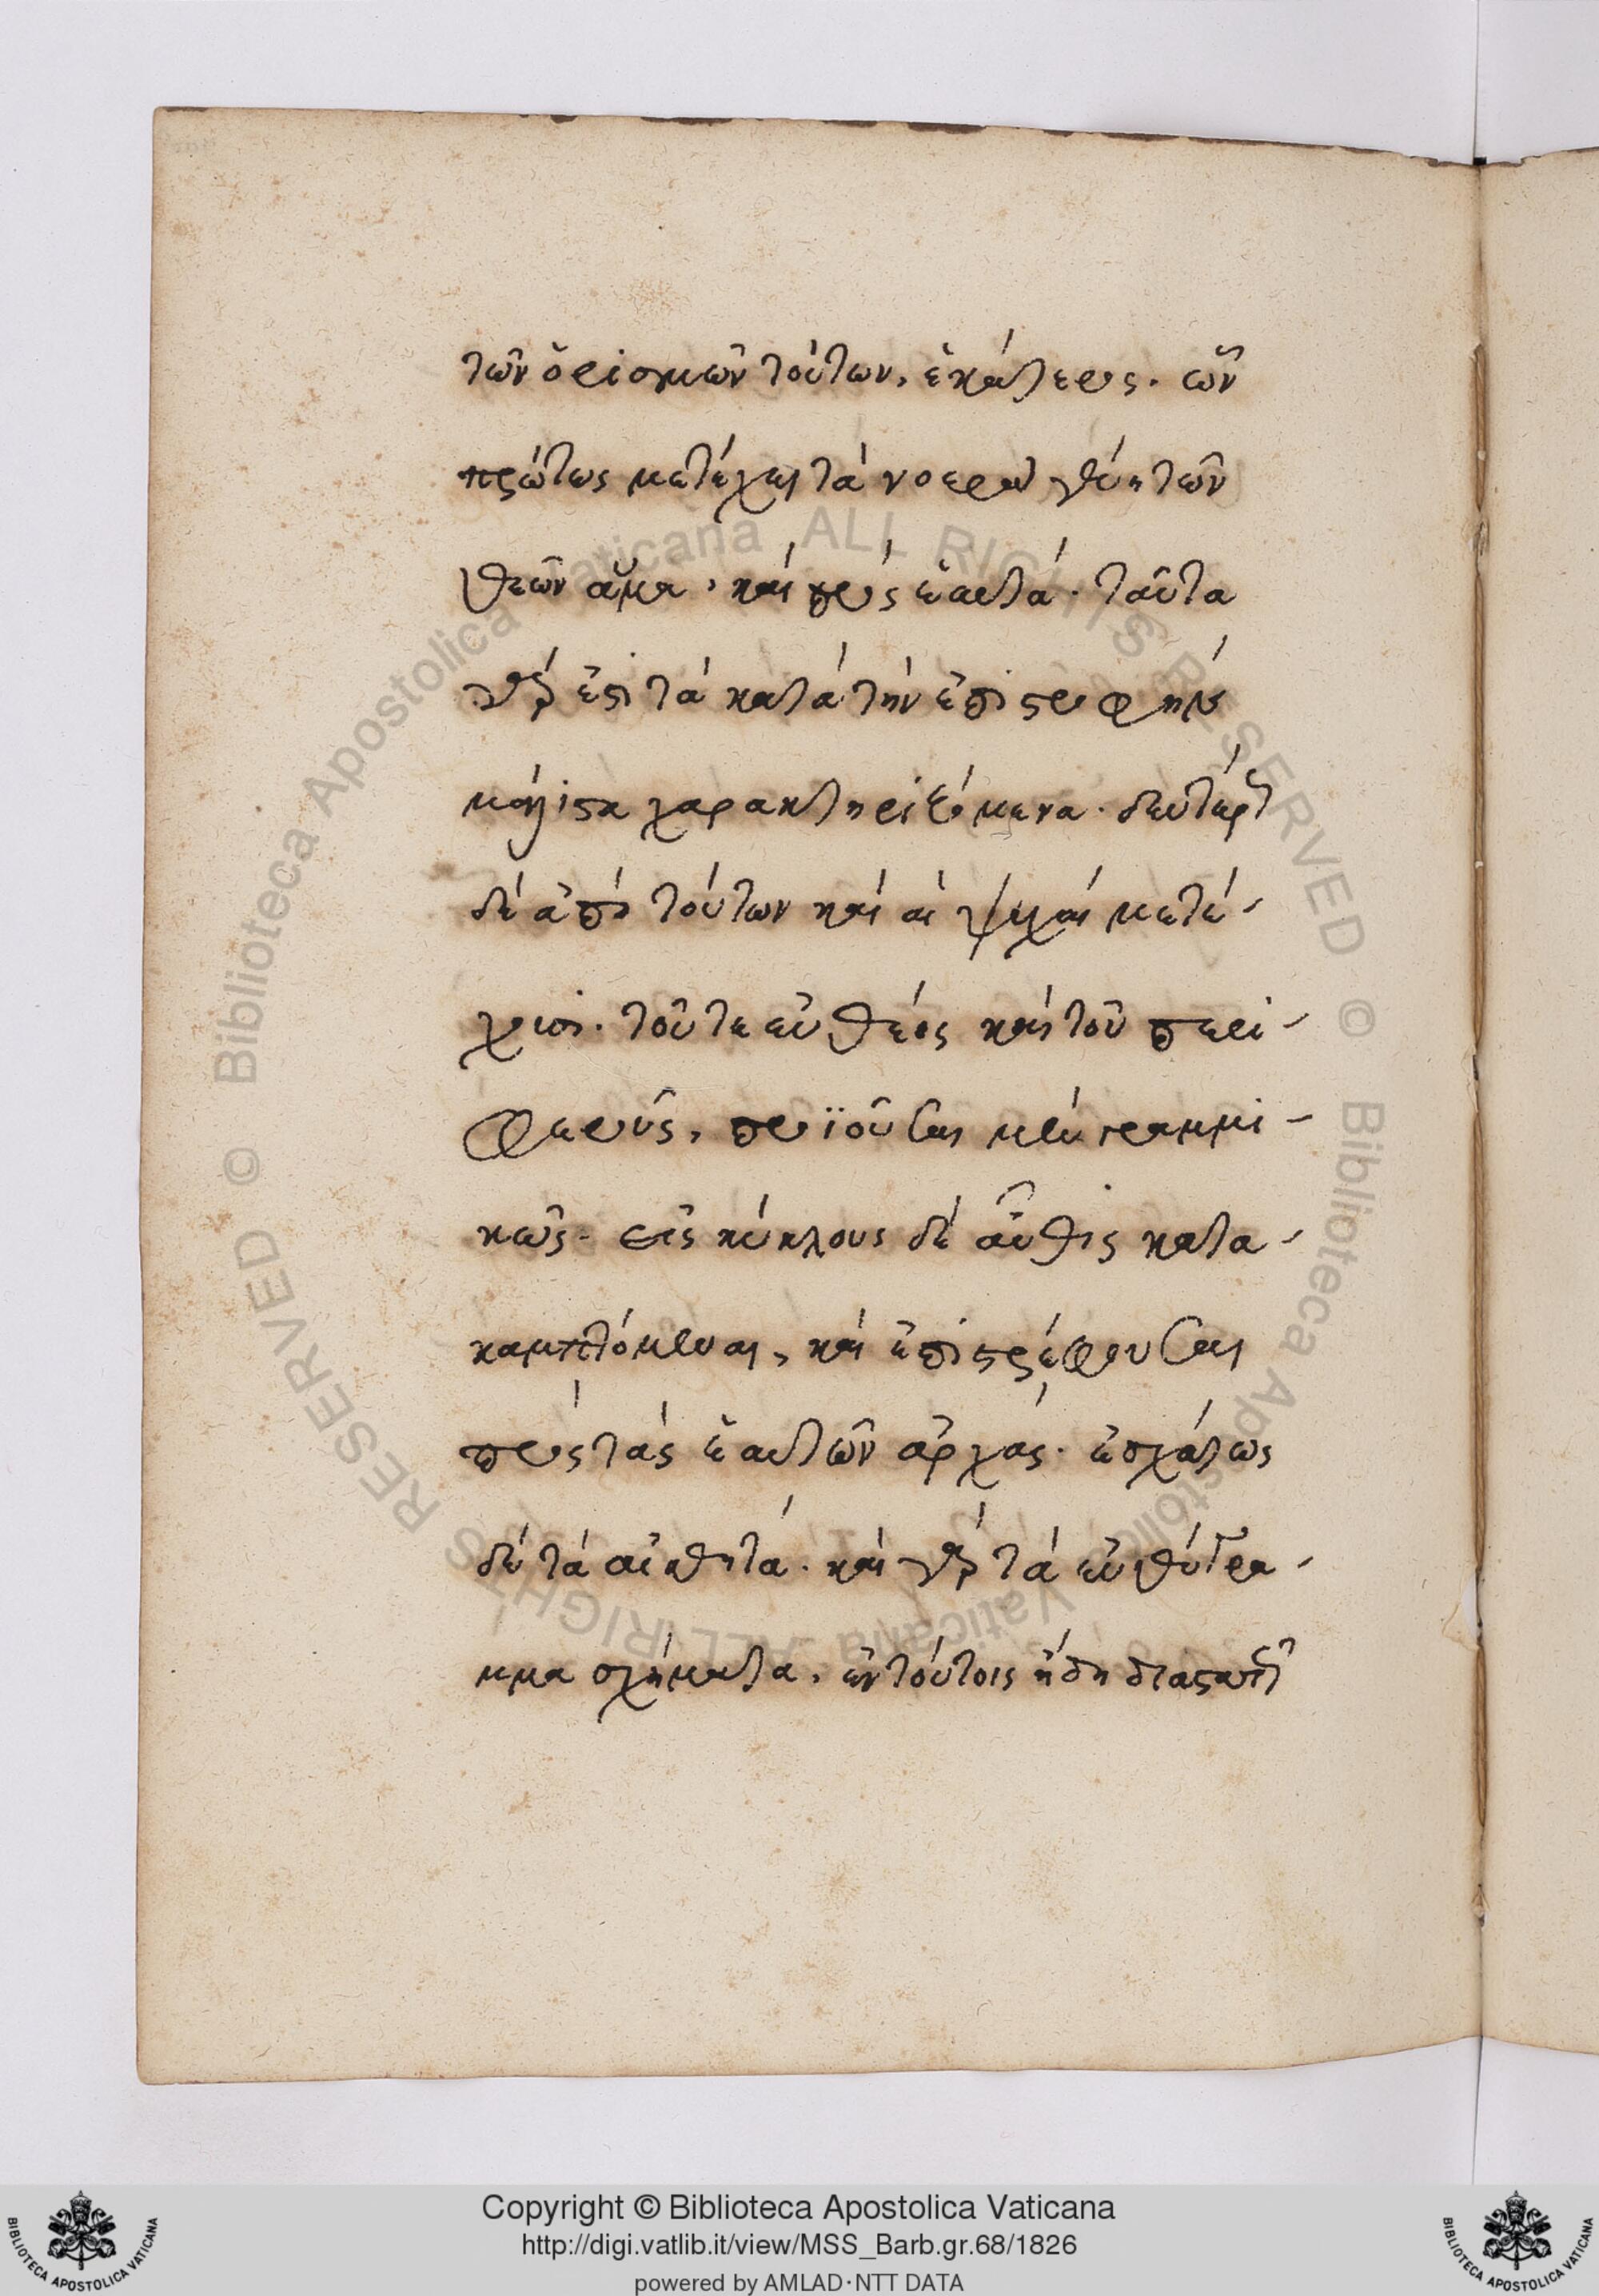 τῶν ὁρισμῶν τούτων, ἑκάτερος. ὧν
πρώτως μετέχει τὰ νοερὰ γένη τῶν
θεῶν ἅμα, καὶ πρὸς ἑαυτά. ταῦτα
γάρ ἐστι τὰ κατὰ τὴν ἐπιστροφὴν
μάλιστα χαρακτηριζόμενα. δευτέρως
δὲ ἀπὸ τούτων καὶ αἱ ψυχαὶ μετέ-
χουσι. τοῦ τε εὐθέος καὶ τοῦ περι-
φεροῦς, προϊοῦσαι μὲν γραμμι-
κῶς. εἰς κύκλους δὲ αὖθις κατα-
καμπτόμεναι, καὶ ἐπιστρέφουσαι
πρὸς τὰς ἑαυτῶν ἀρχάς. ἐσχάτως
δὲ τὰ αἰσθητά. καὶ γὰρ τὰ εὐθύγρα-
μμα σχήματα, ἐν τούτοις ἤδη
Copyright © Biblioteca Apostolica Vaticana
http://digi.vatlib.it/view/MSS_Barb.gr.68/1826
powered by AMLAD·NTT DATA
BIBLIOTECA APOSTOLICA VATICANA
BIBLIOTECA APOSTOLICA VATICANA
© Biblioteca Apostolica Vaticana ALL RIGHTS RESERVED
© Biblioteca Apostolica Vaticana ALL RIGHTS RESERVED